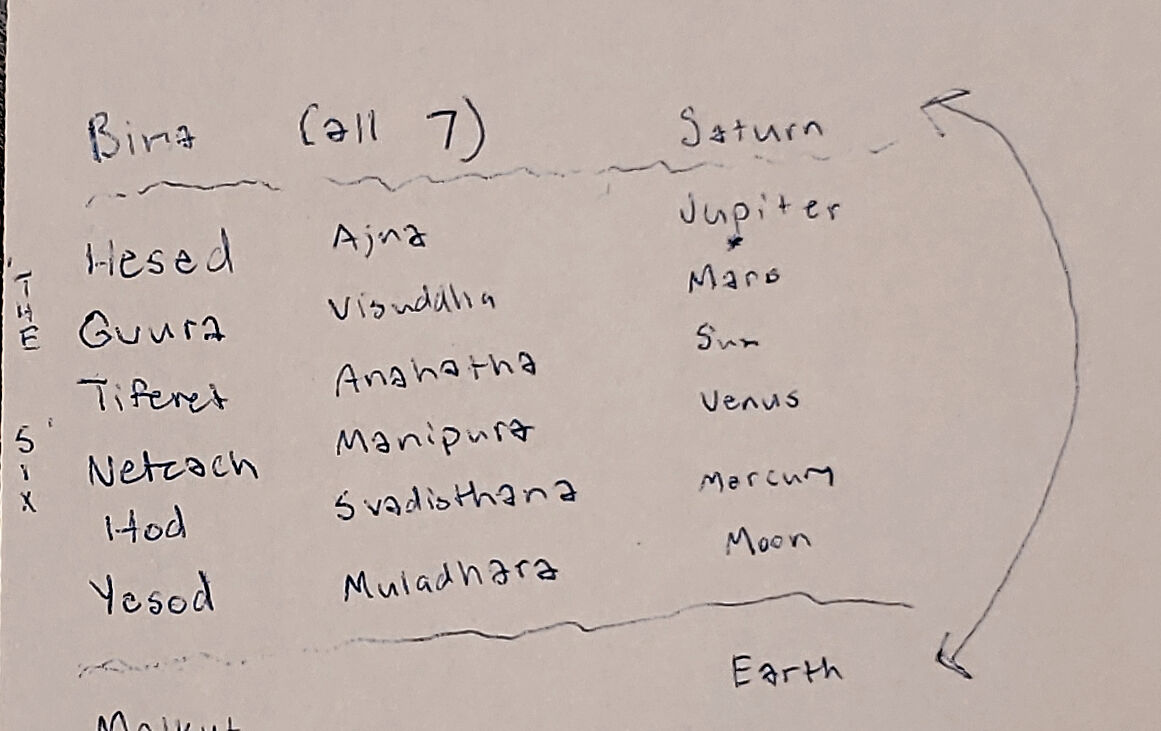 Bina (all 7) Saturn
Hesed Ajna Jupiter
Gvura Visuddha Mars
Tiferet Anahatha Sun
Netzach Manipura Venus
Hod Svadisthana Mercury
Yesod Muladhara Moon
Earth
Malkut
'THE SIX'